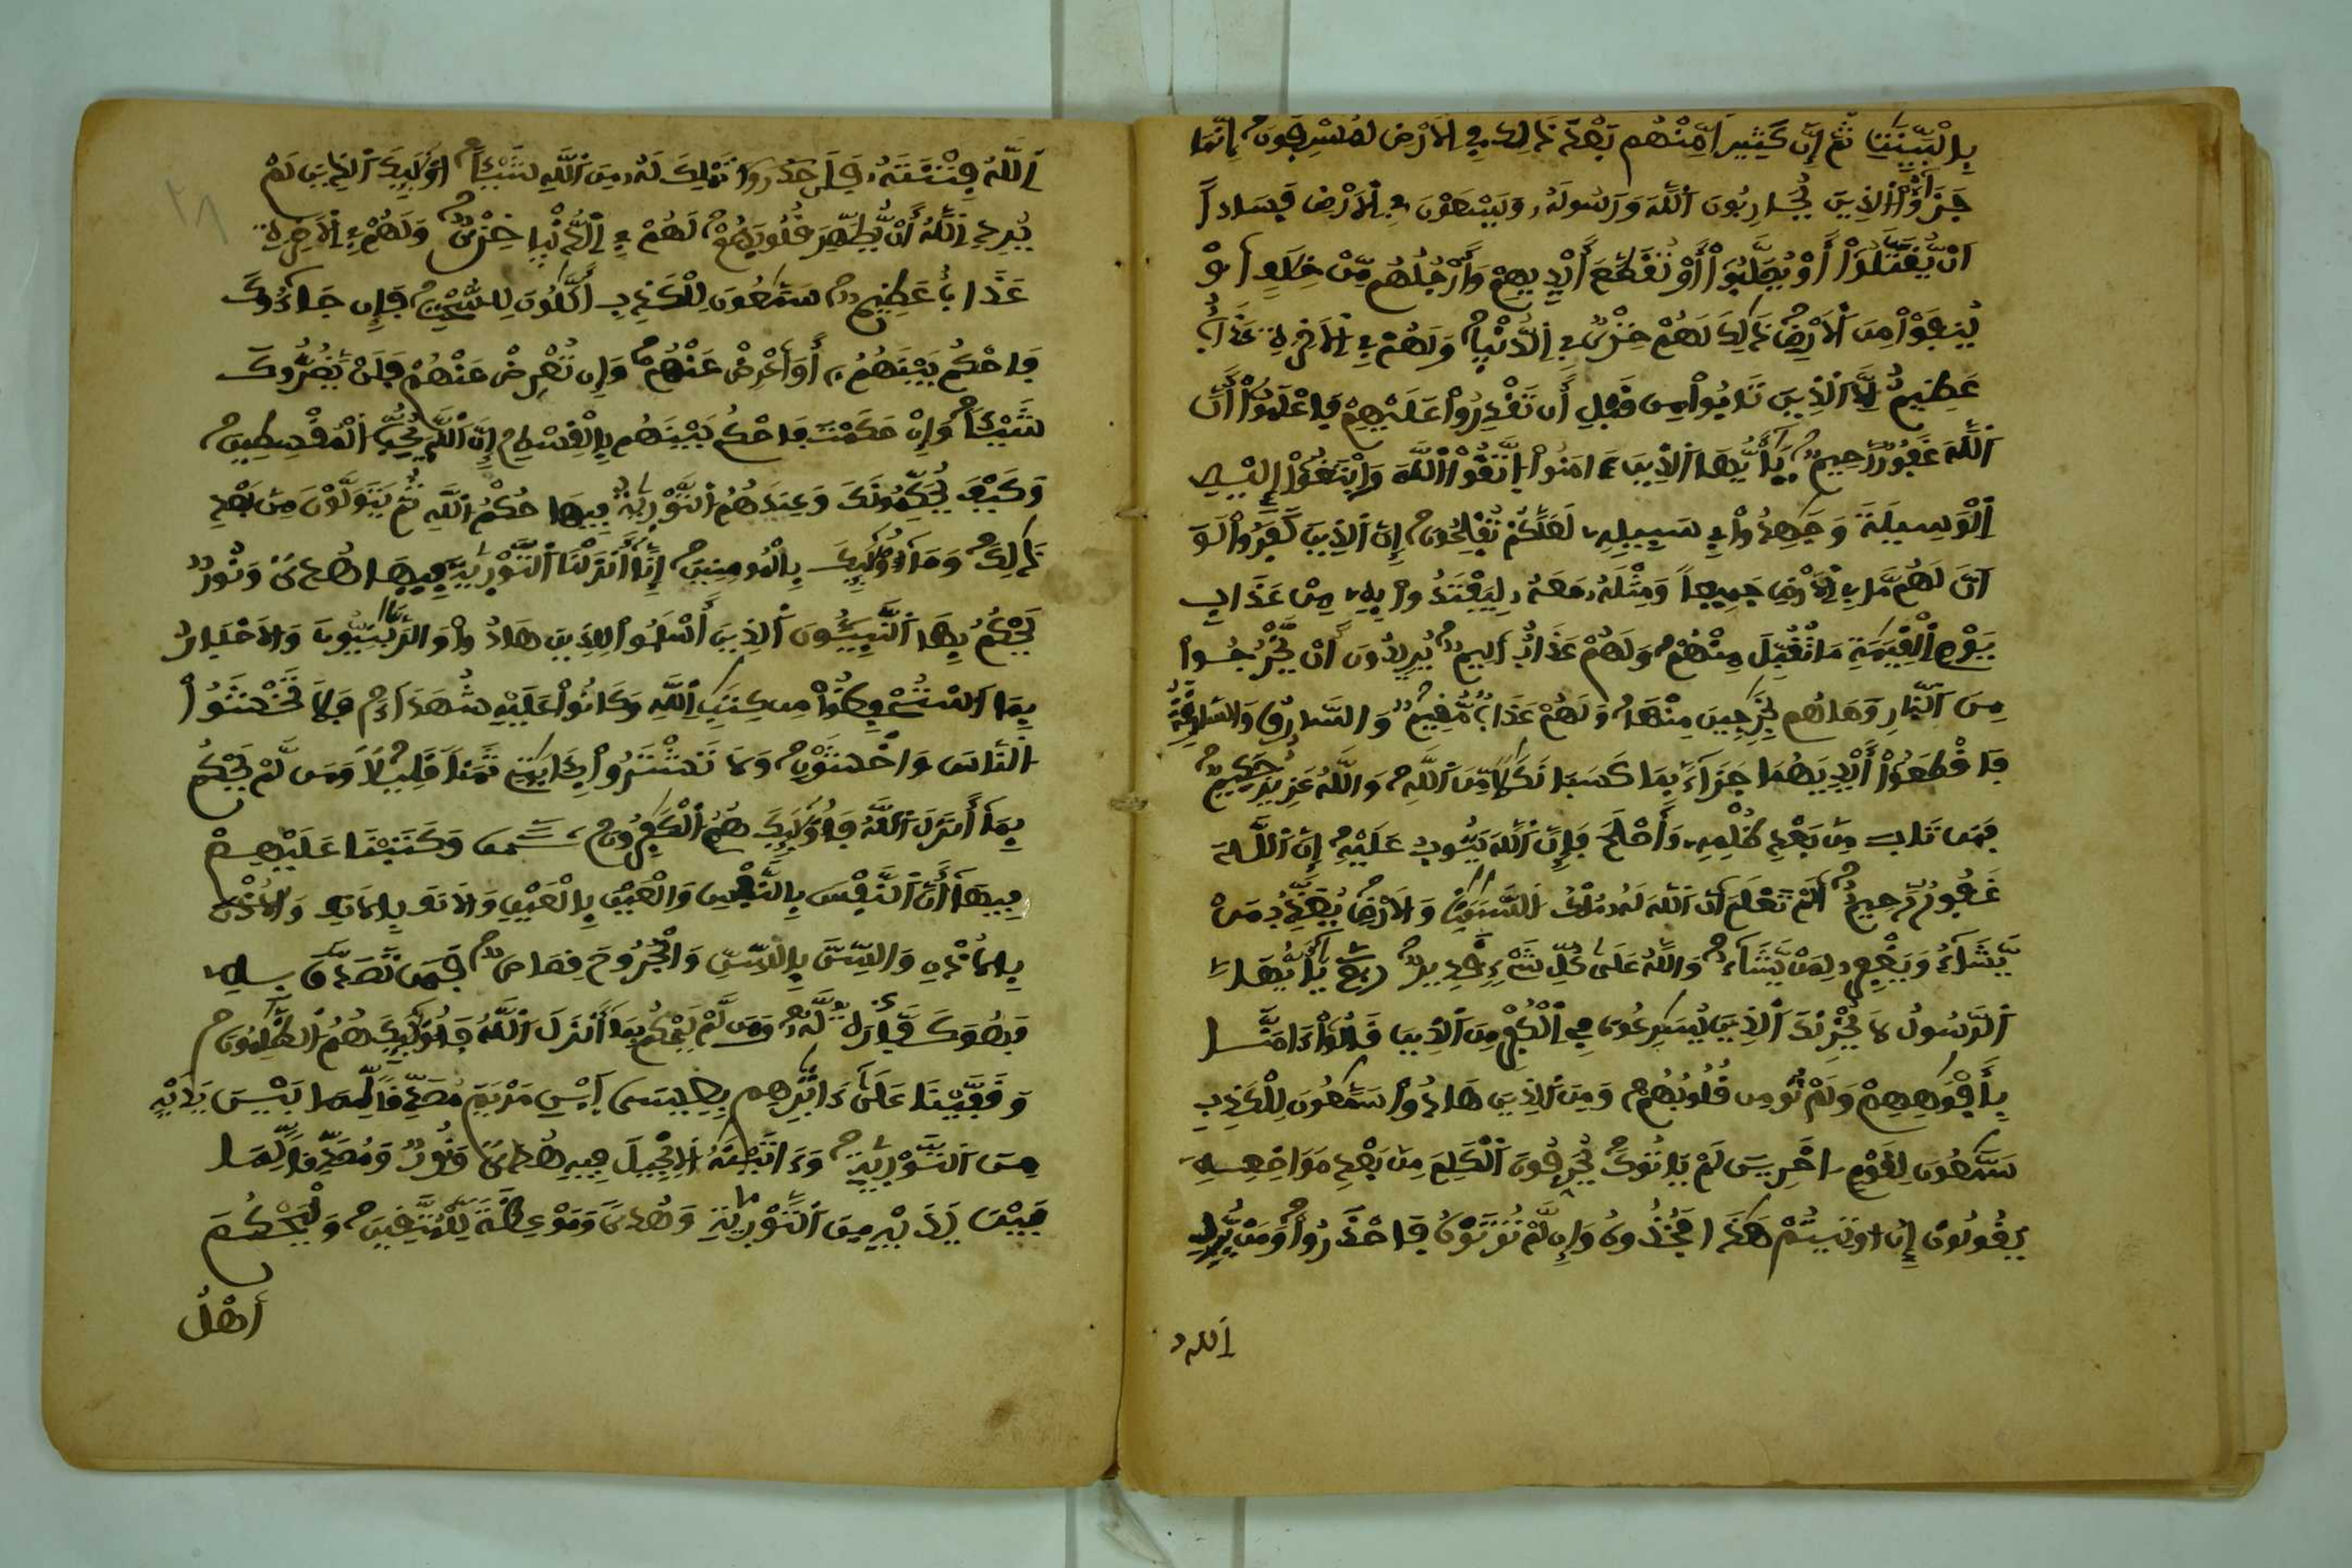 بِالْبَيِّنَٰتِ ثُمَّ إِنَّ كَثِيراً مِّنْهُم بَعْدَ ذَٰلِكَ فِے اِلَارْضِ لَمُسْرِفُونَ إِنَّمَا
جَزَٰٓؤُاْ اُ۬لذِينَ يُحَارِبُونَ اَ۬للَّهَ وَرَسُولَهُۥ وَيَسْعَوْنَ فِے اِ۬لَارْضِ فَسَاداً
اَنْ يُّقَتَّلُوٓاْ أَوْ يُصَلَّبُوٓاْ أَوْ تُقَطَّعَ أَيْدِيهِمْ وَأَرْجُلُهُم مِّنْ خِلَٰفٍ اَوْ
يُنفَوْاْ مِنَ اَ۬لَارْضِ ذَٰلِكَ لَهُمْ خِزْيٌ فِے اِ۬لدُّنْيَا وَلَهُمْ فِے اِ۬لَاخِرَةِ عَذَابٌ
عَظِيمٌ اِلَّا اَ۬لذِينَ تَابُواْ مِن قَبْلِ أَن تَقْدِرُواْ عَلَيْهِمْ فَاعْلَمُوٓاْ أَنَّ
اَ۬للَّهَ غَفُورٌ رَّحِيمٌ يَٰٓأَيُّهَا اَ۬لذِينَ ءَامَنُواْ اُ۪تَّقُواْ اُ۬للَّهَ وَابْتَغُوٓاْ إِلَيْهِ
اِ۬لْوَسِيلَةَ وَجَٰهِدُواْ فِے سَبِيلِهِۦ لَعَلَّكُمْ تُفْلِحُونَ إِنَّ اَ۬لذِينَ كَفَرُواْ لَوَ
اَنَّ لَهُم مَّا فِے اِ۬لَارْضِ جَمِيعاً وَمِثْلَهُۥ مَعَهُۥ لِيَفْتَدُواْ بِهِۦ مِنْ عَذَابِ
يَوْمِ اِ۬لْقِيَٰمَةِ مَا تُقُبِّلَ مِنْهُمْ وَلَهُمْ عَذَابٌ اَلِيمٌ يُرِيدُونَ أَنْ يَّخْرُجُواْ
مِنَ اَ۬لنّ۪ارِ وَمَا هُم بِخَٰرِجِينَ مِنْهَا وَلَهُمْ عَذَابٌ مُّقِيمٌ وَالسَّارِقُ وَالسَّارِقَةُ
فَاقْطَعُوٓاْ أَيْدِيَهُمَا جَزَآءَۢ بِمَا كَسَبَا نَكَٰلاً مِّنَ اَ۬للَّهِ وَاللَّهُ عَزِيزٌ حَكِيمٌ
فَمَن تَابَ مِنۢ بَعْدِ ظُلْمِهِۦ وَأَصْلَحَ فَإِنَّ اَ۬للَّهَ يَتُوبُ عَلَيْهِ إِنَّ اَ۬للَّهَ
غَفُورٌ رَّحِيمٌ اَلَمْ تَعْلَمَ اَنَّ اَ۬للَّهَ لَهُۥ مُلْكُ اُ۬لسَّمَٰوَٰتِ وَالَارْضِ يُعَذِّبُ مَنْ
يَّشَآءُ وَيَغْفِرُ لِمَنْ يَّشَآءُ وَاللَّهُ عَلَىٰ كُلِّ شَےْءٍ قَدِيرٌ ربع يَٰٓأَيُّهَا
اَ۬لرَّسُولُ لَا يُحْزِنكَ اَ۬لذِينَ يُسَٰرِعُونَ فِے اِ۬لْكُفْرِ مِنَ اَ۬لذِينَ قَالُوٓاْ ءَامَنَّا
بِأَفْوَٰهِهِمْ وَلَمْ تُومِن قُلُوبُهُمْ وَمِنَ اَ۬لذِينَ هَادُواْ سَمَّٰعُونَ لِلْكَذِبِ
سَمَّٰعُونَ لِقَوْمٍ اٰخَرِينَ لَمْ يَاتُوكَ يُحَرِّفُونَ اَ۬لْكَلِمَ مِنۢ بَعْدِ مَوَاضِعِهِۦ
يَقُولُونَ إِنُ اوتِيتُمْ هَٰذَا فَخُذُوهُ وَإِن لَّمْ تُوتَوْهُ فَاحْذَرُواْ وَمَنْ يُّرِدِ
اِ۬لله
اِ۬للَّهُ فِتْنَتَهُۥ فَلَن تَمْلِكَ لَهُۥ مِنَ اَ۬للَّهِ شَيْـٔاً اُوْلَٰٓئِكَ اَ۬لذِينَ لَمْ
يُرِدِ اِ۬للَّهُ أَنْ يُّطَهِّرَ قُلُوبَهُمْ لَهُمْ فِے اِ۬لدُّنْيَا خِزْيٌ وَلَهُمْ فِے اِ۬لَاخِرَةِ
عَذَابٌ عَظِيمٌ سَمَّٰعُونَ لِلْكَذِبِ أَكَّٰلُونَ لِلسُّحْتِ فَإِن جَآءُوكَ
فَاحْكُم بَيْنَهُمُۥٓ أَوَ اَعْرِضْ عَنْهُمْ وَإِن تُعْرِضْ عَنْهُمْ فَلَنْ يَّضُرُّوكَ
شَيْـٔاً وَإِنْ حَكَمْتَ فَاحْكُم بَيْنَهُم بِالْقِسْطِ إِنَّ اَ۬للَّهَ يُحِبُّ اُ۬لْمُقْسِطِينَ
وَكَيْفَ يُحَكِّمُونَكَ وَعِندَهُمُ اُ۬لتَّوْر۪يٰةُ فِيهَا حُكْمُ اُ۬للَّهِ ثُمَّ يَتَوَلَّوْنَ مِنۢ بَعْدِ
ذَٰلِكَ وَمَآ أُوْلَٰٓئِكَ بِالْمُومِنِينَ إِنَّآ أَنزَلْنَا اَ۬لتَّوْر۪يٰةَ فِيهَا هُدىً وَنُورٌ
يَحْكُمُ بِهَا اَ۬لنَّبِيٓـُٔونَ اَ۬لذِينَ أَسْلَمُواْ لِلذِينَ هَادُواْ وَالرَّبَّٰنِيُّونَ وَالَاحْبَارُ
بِمَا اَ۟سْتُحْفِظُواْ مِن كِتَٰبِ اِ۬للَّهِ وَكَانُواْ عَلَيْهِ شُهَدَآءَ فَلَا تَخْشَوُاْ
اُ۬لنَّاسَ وَاخْشَوْنِ وَلَا تَشْتَرُواْ بِـَٔايَٰتِے ثَمَناً قَلِيلاً وَمَن لَّمْ يَحْكُم
بِمَآ أَنزَلَ اَ۬للَّهُ فَأُوْلَٰٓئِكَ هُمُ اُ۬لْكَٰفِرُونَ ثمن وَكَتَبْنَا عَلَيْهِمْ
فِيهَآ أَنَّ اَ۬لنَّفْسَ بِالنَّفْسِ وَالْعَيْنَ بِالْعَيْنِ وَالَانفَ بِالَانفِ وَالُاذْنَ
بِالُاذْنِ وَالسِّنَّ بِالسِّنِّ وَالْجُرُوحَ قِصَاصٌ فَمَن تَصَدَّقَ بِهِۦ
فَهُوَ كَفَّارَةٌ لَّهُۥ وَمَن لَّمْ يَحْكُم بِمَآ أَنزَلَ اَ۬للَّهُ فَأُوْلَٰٓئِكَ هُمُ اُ۬لظَّٰلِمُونَ
وَقَفَّيْنَا عَلَىٰٓ ءَاثٰ۪رِهِم بِعِيسَى اَ۪بْنِ مَرْيَمَ مُصَدِّقاً لِّمَا بَيْنَ يَدَيْهِ
مِنَ اَ۬لتَّوْر۪يٰةِ وَءَاتَيْنَٰهُ اُ۬لِانجِيلَ فِيهِ هُدىً وَنُورٌ وَمُصَدِّقاً لِّمَا
بَيْنَ يَدَيْهِ مِنَ اَ۬لتَّوْر۪يٰةِ وَهُدىً وَمَوْعِظَةً لِّلْمُتَّقِينَ وَلْيَحْكُمَ
أَهْلُ